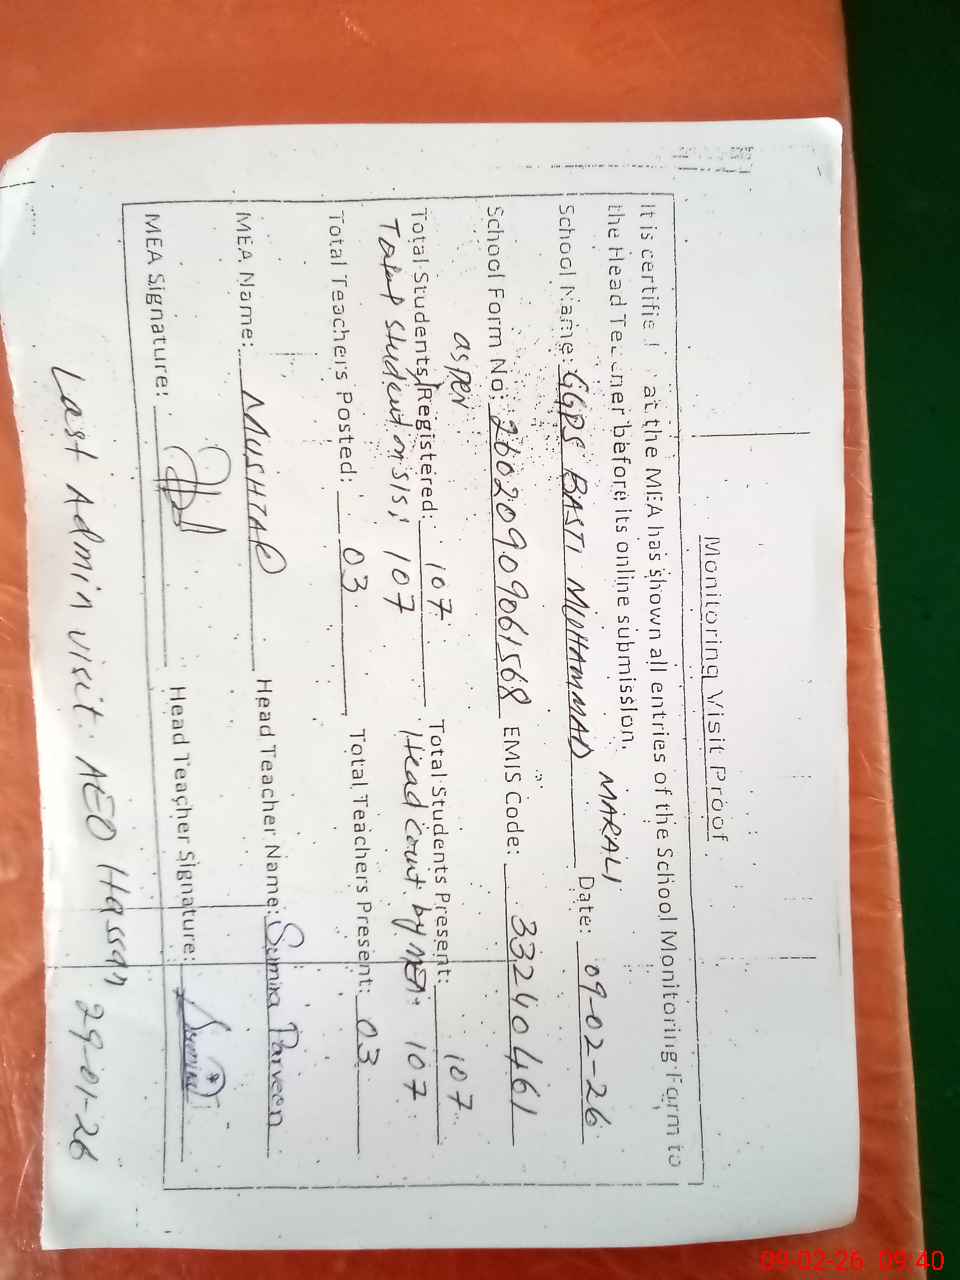 Monitoring Visit Proof
It is certified that the MEA has shown all entries of the School Monitoring Form to
the Head Teacher before its online submission.
MARALI
School Name: GGPS BASTI MUHAMMAD Date: 09-02-26
School Form No: 260209090961568 EMIS Code: 33240461
as per
Total Students Registered: 107 Total Students Present: 107
Total student on SIS: 107 Head count by MEA: 107
Total Teachers Posted: 03 Total Teachers Present: 03
MEA Name: MUSHTAQ Head Teacher Name: Sumira Parveen
MEA Signature: Head Teacher Signature: Sumira
Last Admin visit: AEO Hassan 29-01-26
09-02-26 09:40